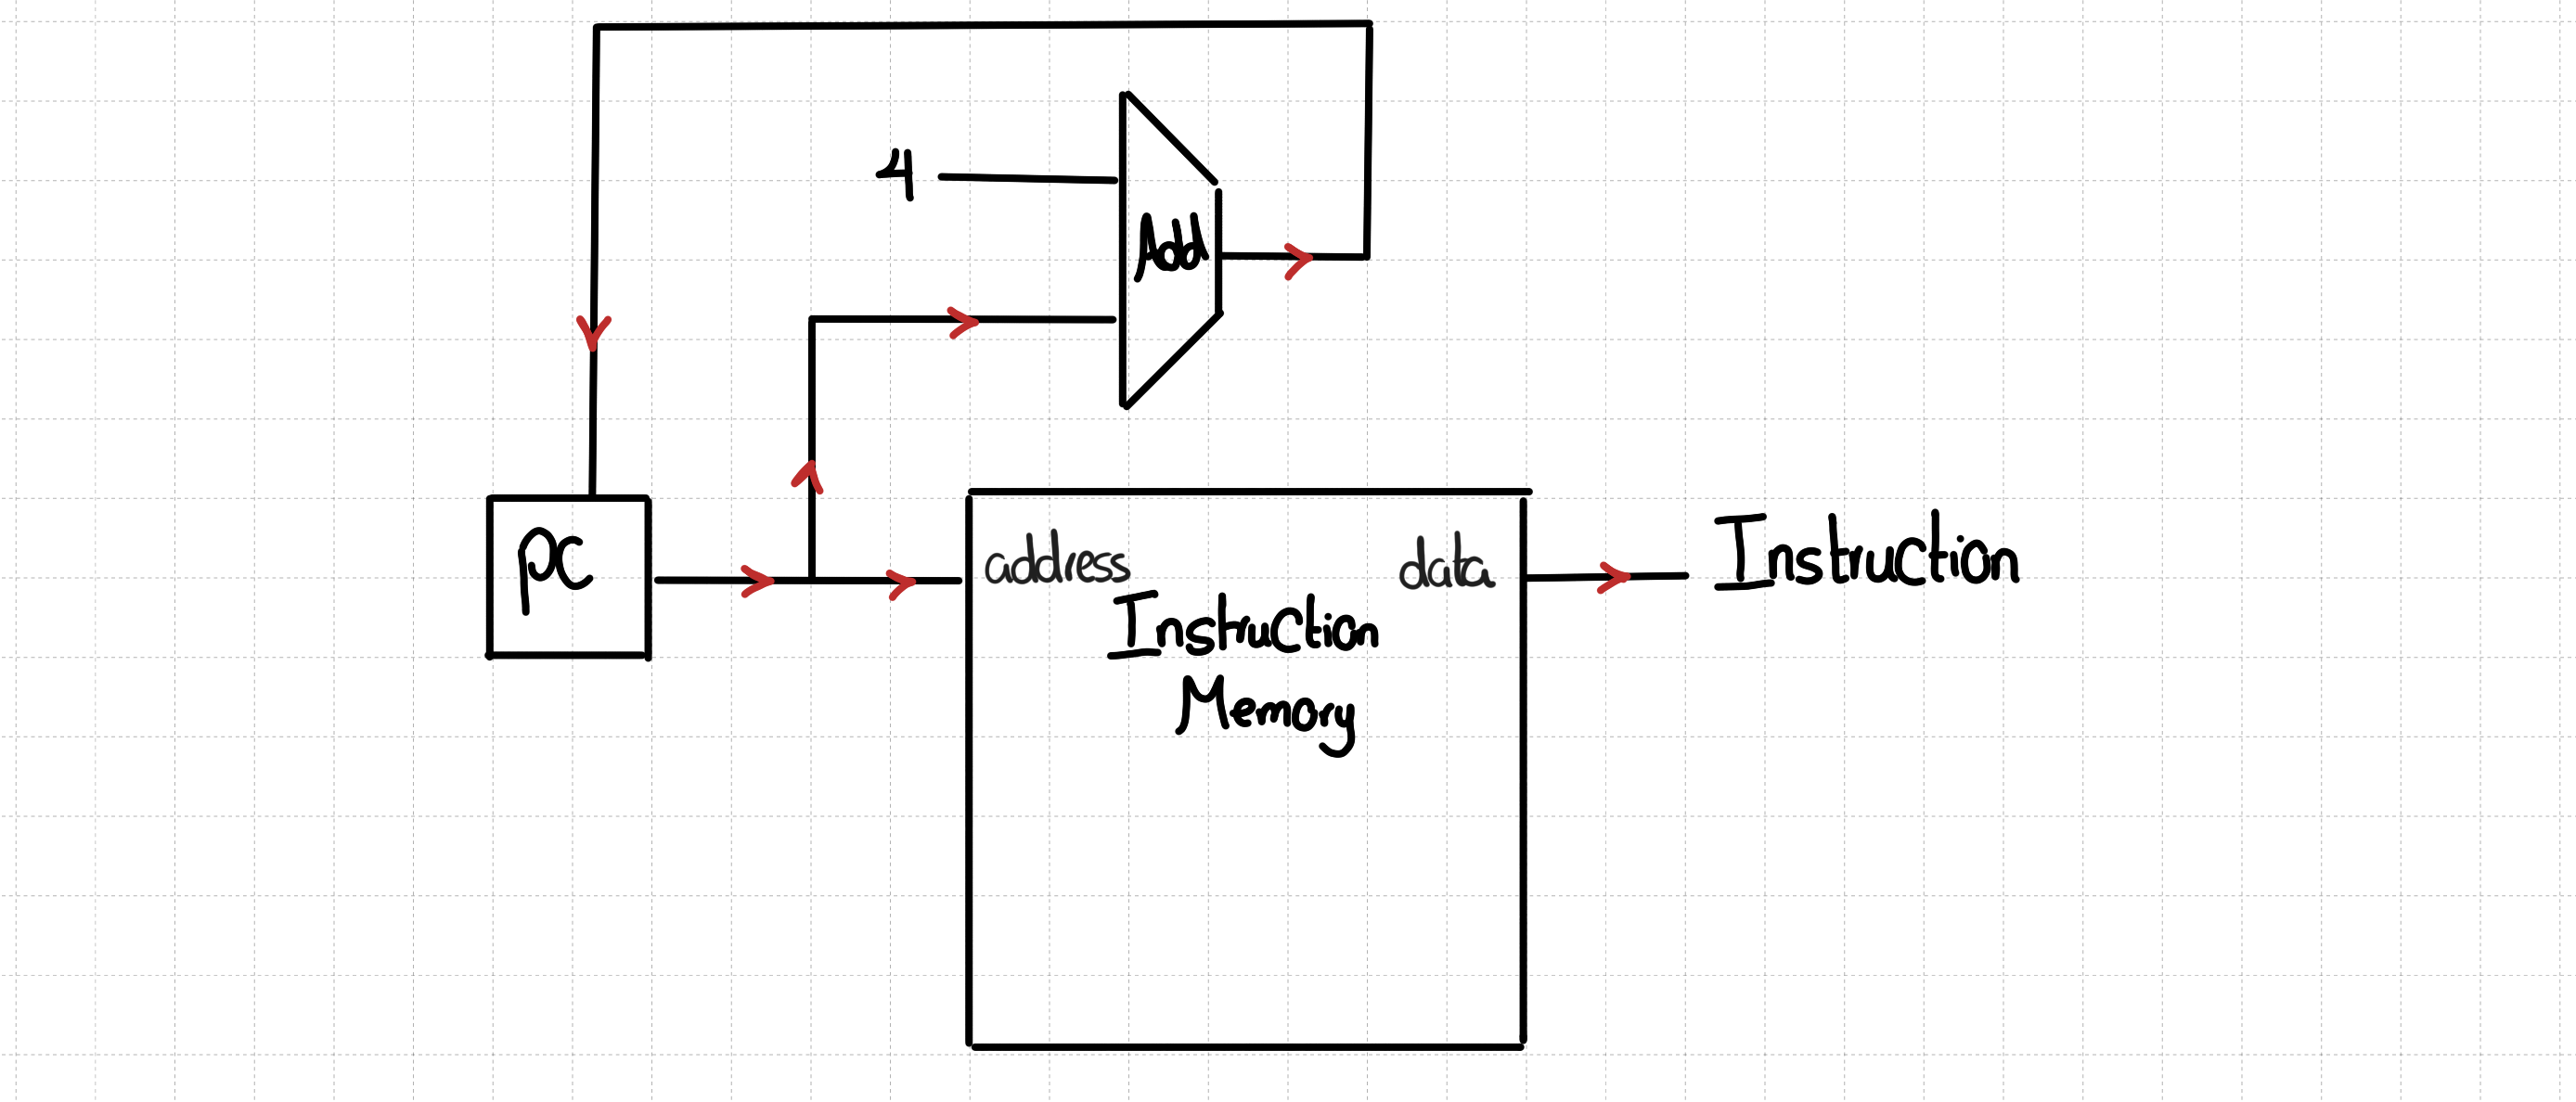 4
Add
PC
address
data
Instruction
Memory
Instruction